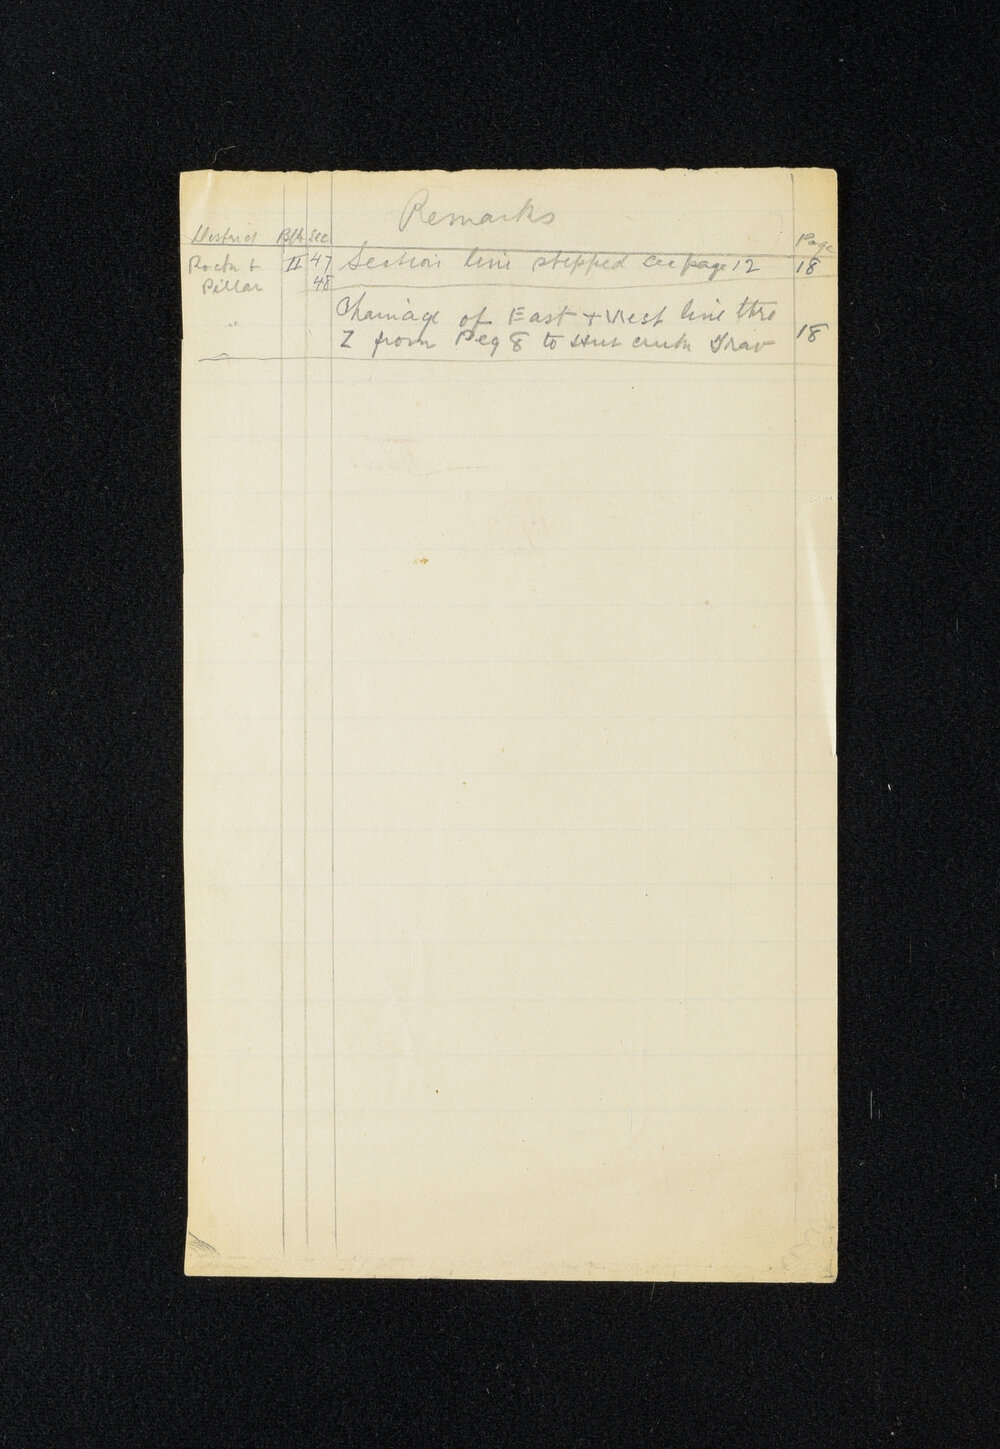 Remarks
District Blk Sec Page
Rock & II 47 Section line stepped see page 12 18
Pillar 48
" Chainage of East + West line thro
Z from Peg 8 to Hut creek Trav 18